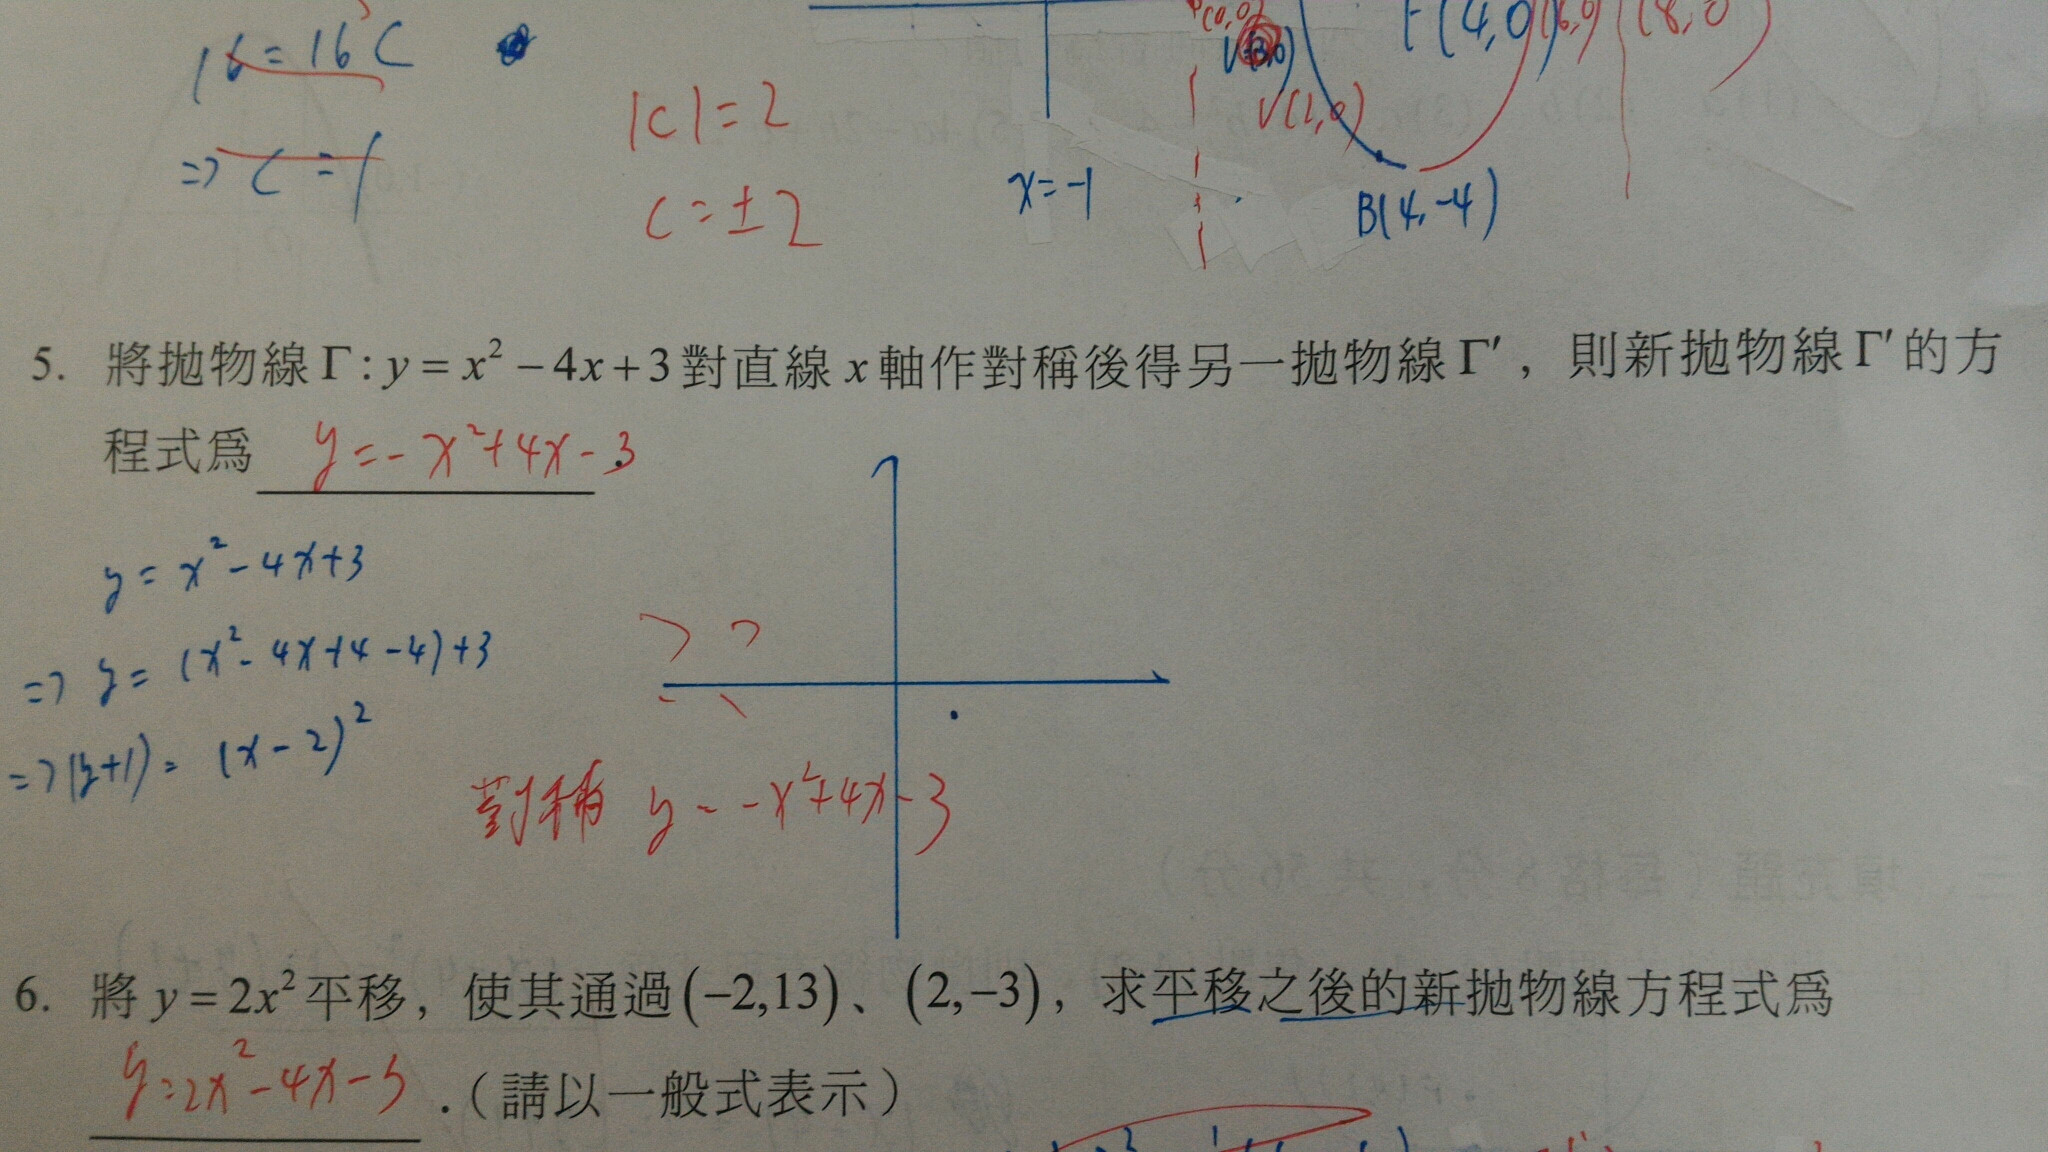 16=16C
⇒ C=1
|C|=2
C=±2
(0,0)
V(1,0)
F(4,0)
(6,0)
(8,0)
x=-1
B(4,-4)
5. 將拋物線Γ:y=x²−4x+3對直線x軸作對稱後得另一拋物線Γ′，則新拋物線Γ′的方
程式為 y=-x²+4x-3
y=x²-4x+3
⇒ y=(x²-4x+4-4)+3
⇒(y+1)=(x-2)²
對稱 y=-x²+4x-3
6. 將y=2x²平移，使其通過(−2,13)、(2,−3)，求平移之後的新拋物線方程式為
y=2x²-4x-3 .(請以一般式表示)